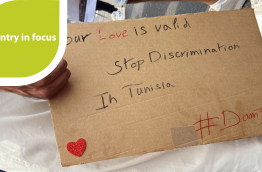 ntry in focus
our Love is valid
Stop Discrimination
In Tunisia
#Dam